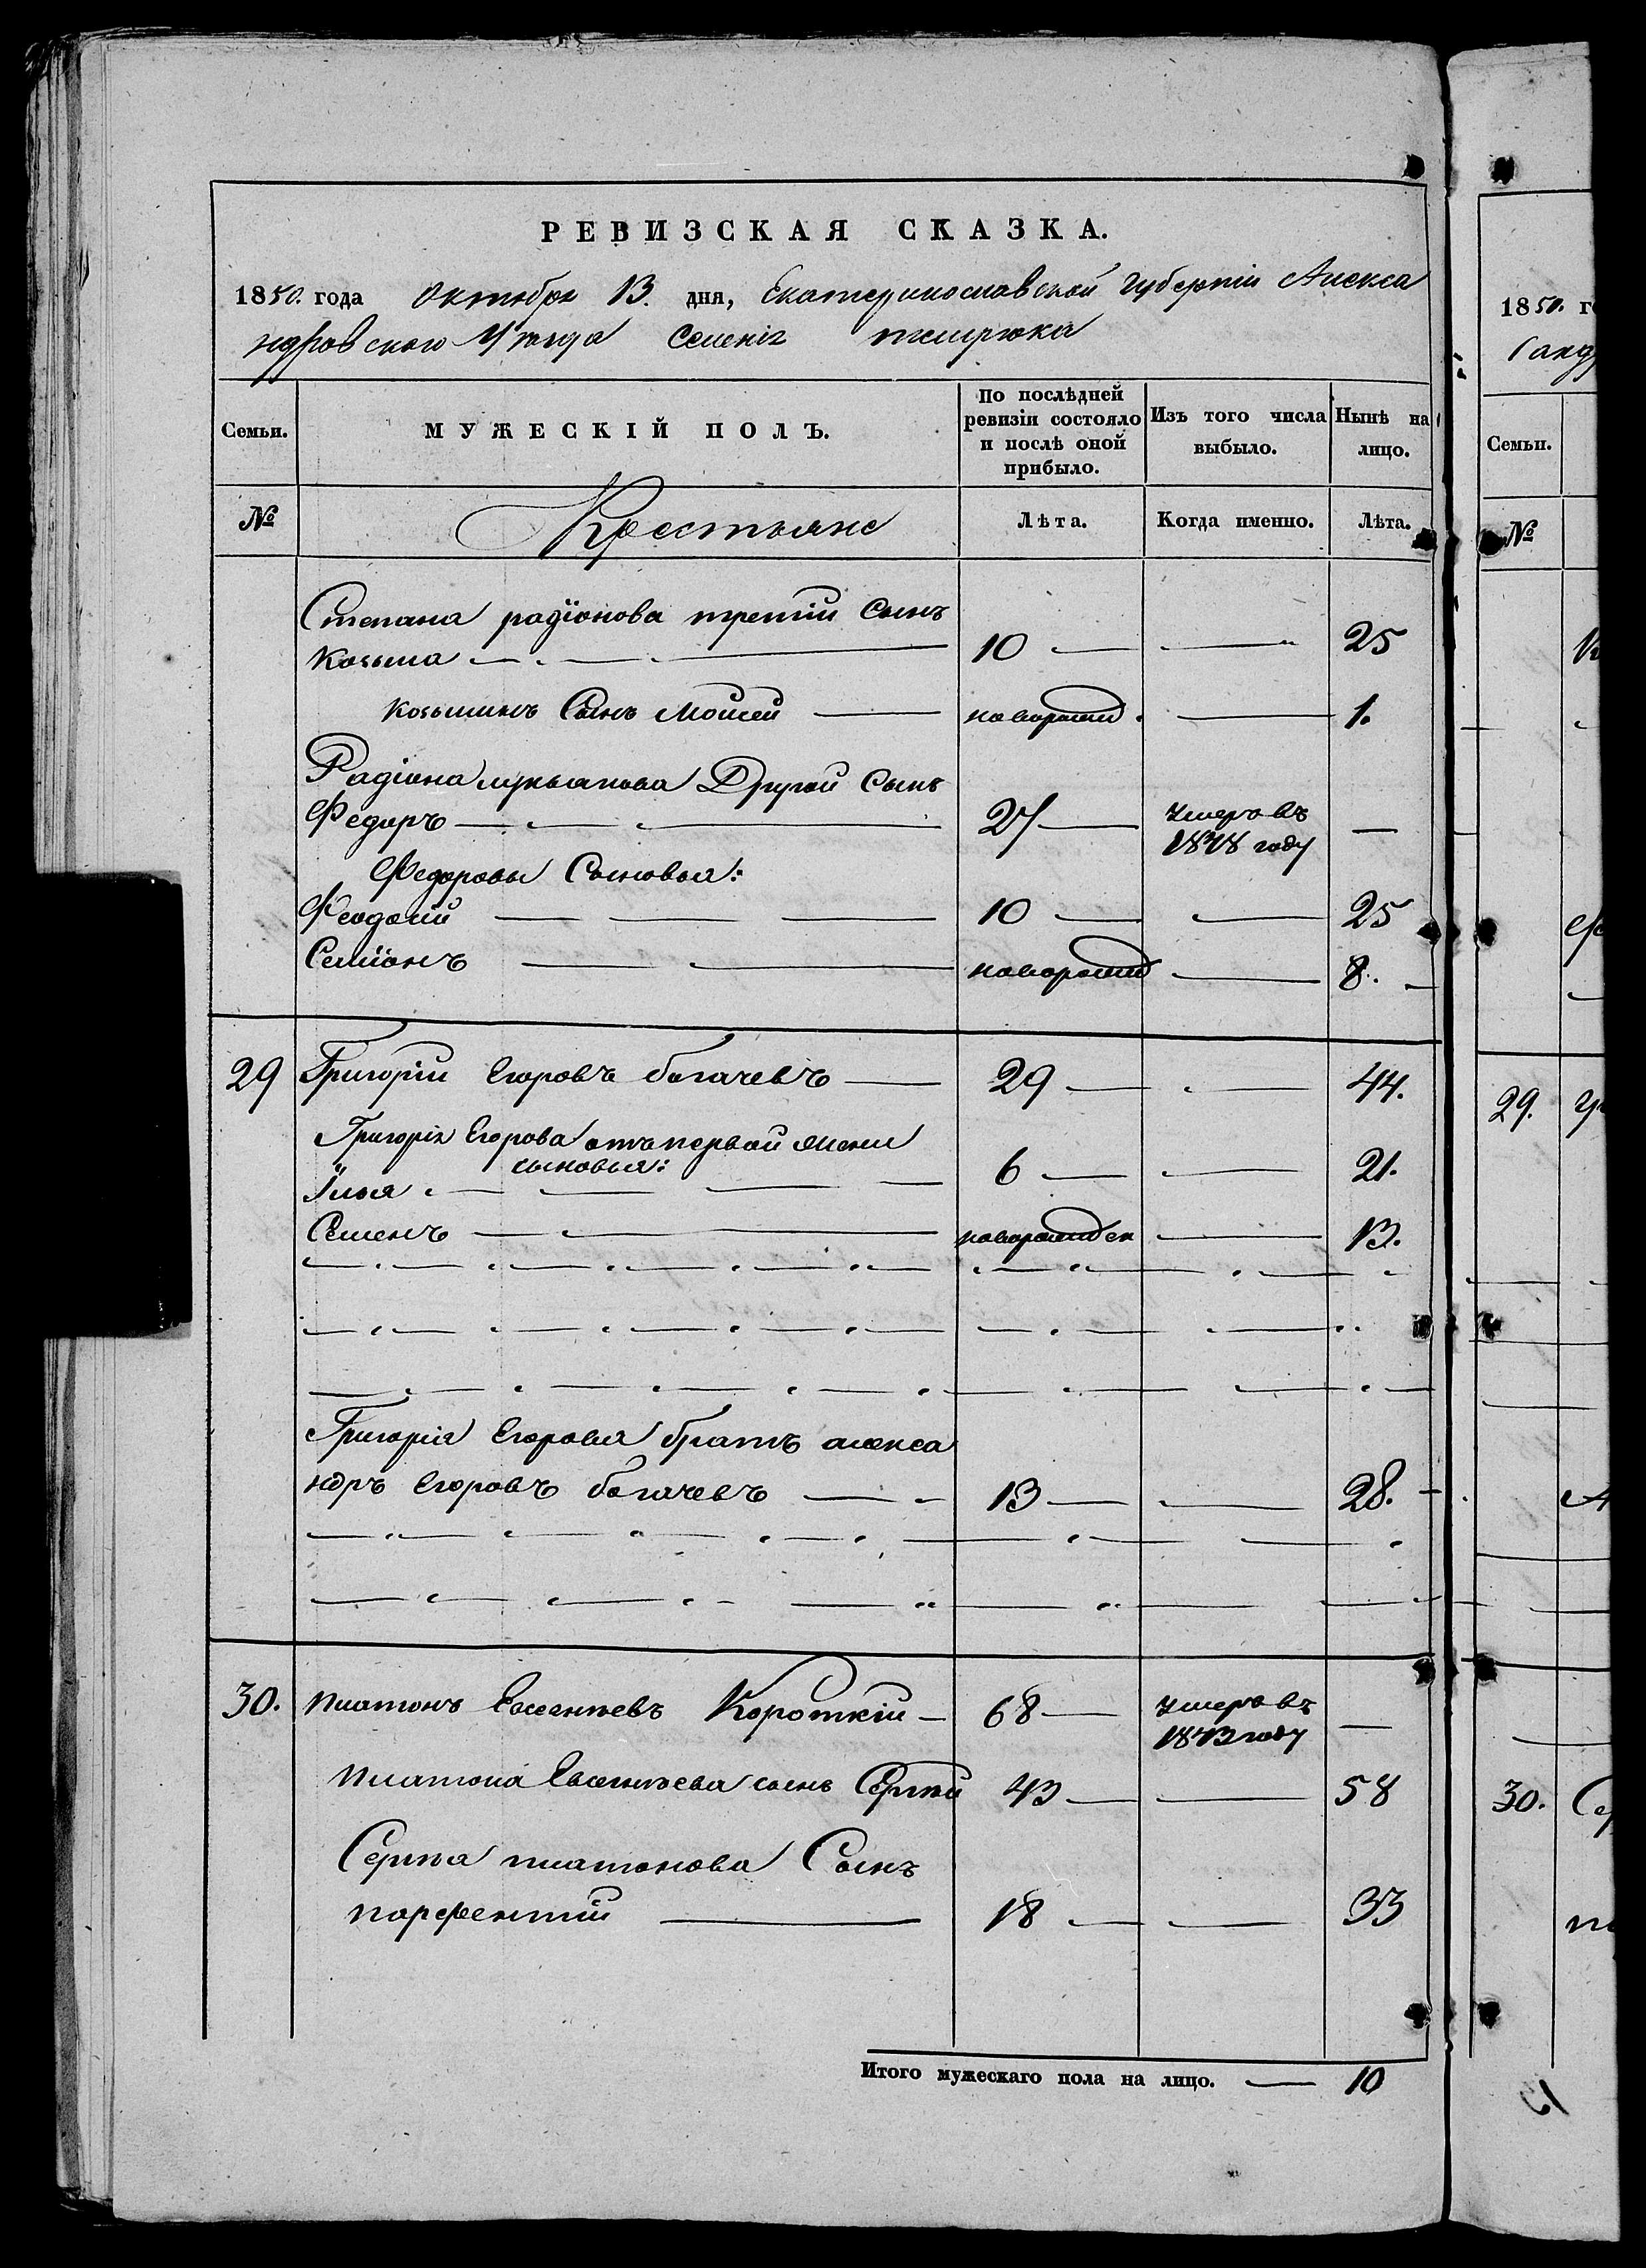 РЕВИЗСКАЯ СКАЗКА.
1850. года октября 13. дня, Екатеринославской губерніи Алекса
ндровского Уѣзда Селенія темрюка
Семьи.
МУЖЕСКІЙ ПОЛЪ.
По послѣдней
ревизіи состояло
и послѣ оной
прибыло.
Изъ того числа
выбыло.
Нынѣ на
лицо.
№
Крестьяне
Лѣта.
Когда именно.
Лѣта.
Степана радіонова третій Сынъ
Козьма 10 25
Козьминъ Сынъ Моисей новорожд. 1.
Радіона лукьянова Другой Сынъ
Федоръ 27 умеръ въ
1848 году
Федоровы Сыновья:
Феодосій 10 25
Семіонъ новорожд 8.
29 Григорій Егоровъ богачевъ 29 44.
Григорія Егорова отъ первой жены
сыновья:
Илья 6 21.
Семенъ новорожден 13.
Григорія Егорова братъ алекса
ндръ Егоровъ богачевъ 13 28.
30. платонъ Евсентьевъ Короткій 68 умеръ въ
1843 году
платона Евсентьева сынъ Сергѣй 43 58
Сергѣя платонова Сынъ
парфентій 18 33
Итого мужескаго пола на лицо. 10
1850. г
Семьи.
№
29.
30.